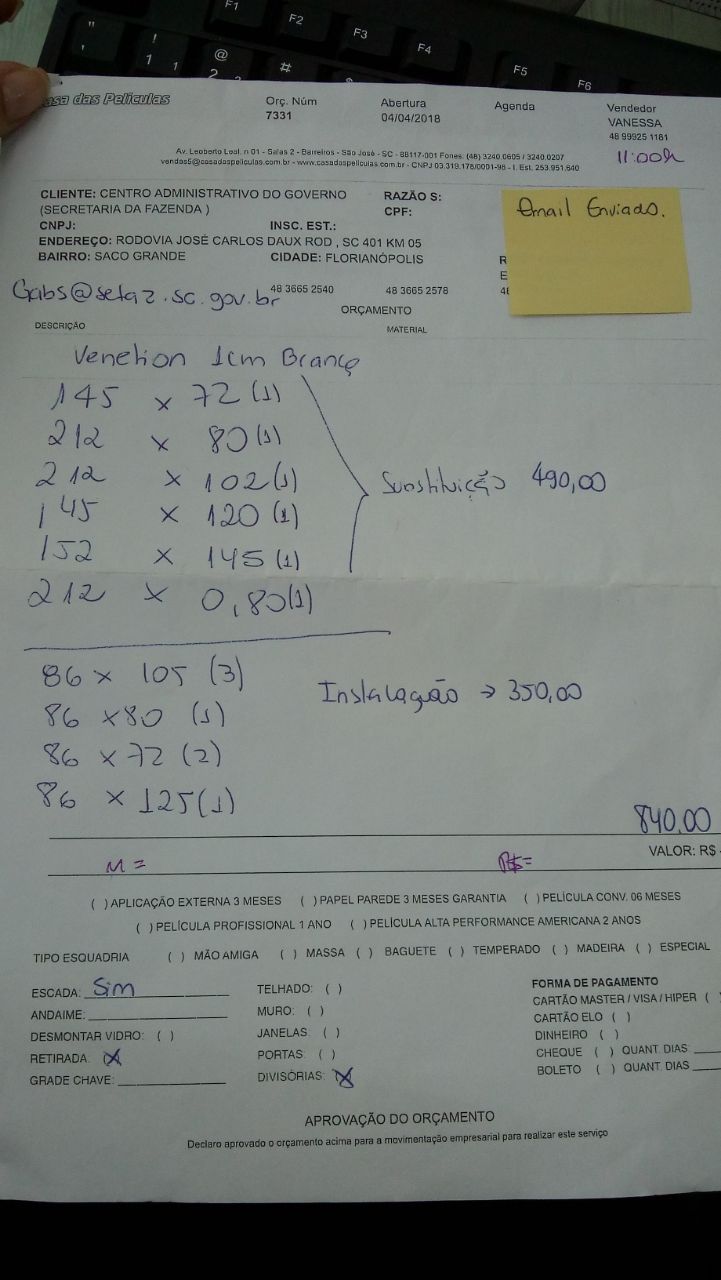 F1 F2 F3 F4 F5 F6
" ! @ #
1 1 2
asa das Películas
Orç. Núm Abertura Agenda Vendedor
7331 04/04/2018 VANESSA
48 99925 1181
11:00h
Av. Leoberto Leal, n 01 - Salas 2 - Barreiros - São José - SC - 88117-001 Fones: (48) 3240.0605 / 3240.0207
vendas5@casadaspeliculas.com.br - www.casadaspeliculas.com.br - CNPJ 03.319.178/0001-98 - I. Est. 253.951.640
CLIENTE: CENTRO ADMINISTRATIVO DO GOVERNO RAZÃO S:
(SECRETARIA DA FAZENDA ) CPF:
Email Enviado.
CNPJ: INSC. EST.:
ENDEREÇO: RODOVIA JOSÉ CARLOS DAUX ROD , SC 401 KM 05
BAIRRO: SACO GRANDE CIDADE: FLORIANÓPOLIS R
E
Gabs@sefaz.sc.gov.br 48 3665 2540 48 3665 2578 48
ORÇAMENTO
DESCRIÇÃO MATERIAL
Venetion 1cm Branco
145 x 72 (1)
212 x 80 (1)
212 x 102 (1)
Sunstituição 490,00
145 x 120 (1)
152 x 145 (1)
212 x 0,80 (1)
86 x 105 (3)
Instalação → 350,00
86 x 80 (1)
86 x 72 (2)
86 x 125 (1)
840,00
M = R$= VALOR: R$
( ) APLICAÇÃO EXTERNA 3 MESES ( ) PAPEL PAREDE 3 MESES GARANTIA ( ) PELÍCULA CONV. 06 MESES
( ) PELÍCULA PROFISSIONAL 1 ANO ( ) PELÍCULA ALTA PERFORMANCE AMERICANA 2 ANOS
TIPO ESQUADRIA ( ) MÃO AMIGA ( ) MASSA ( ) BAGUETE ( ) TEMPERADO ( ) MADEIRA ( ) ESPECIAL
ESCADA: Sim TELHADO: ( ) FORMA DE PAGAMENTO
ANDAIME: MURO: ( ) CARTÃO MASTER / VISA / HIPER (
DESMONTAR VIDRO: ( ) JANELAS: ( ) CARTÃO ELO ( )
RETIRADA: (X) PORTAS: ( ) DINHEIRO ( )
GRADE CHAVE: DIVISÓRIAS: (X) CHEQUE ( ) QUANT. DIAS:
BOLETO ( ) QUANT. DIAS
APROVAÇÃO DO ORÇAMENTO
Declaro aprovado o orçamento acima para a movimentação empresarial para realizar este serviço